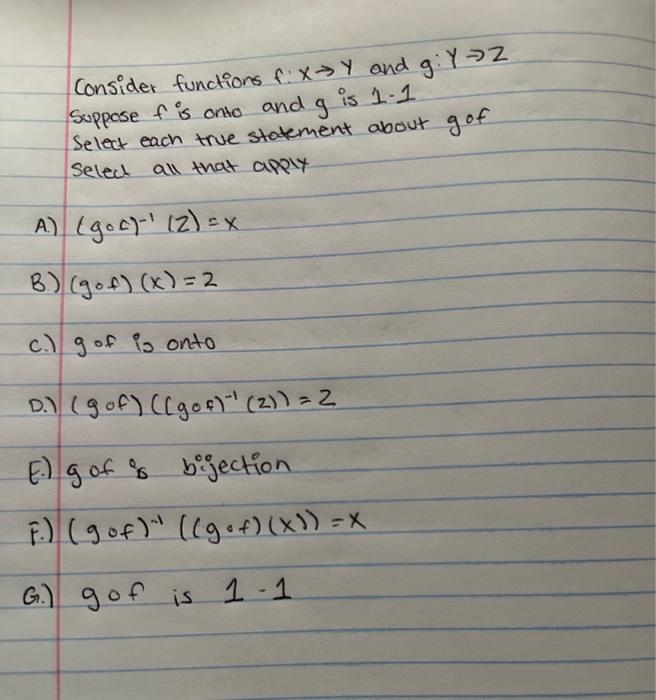 Consider functions f: X→Y and g: Y→Z
Suppose f is onto and g is 1-1
Select each true statement about g∘f
Select all that apply
A.) (g∘f)⁻¹ (Z) = X
B.) (g∘f) (X) = Z
C.) g∘f is onto
D.) (g∘f) ((g∘f)⁻¹ (Z)) = Z
E.) g∘f is bijection
F.) (g∘f)⁻¹ ((g∘f) (X)) = X
G.) g∘f is 1-1